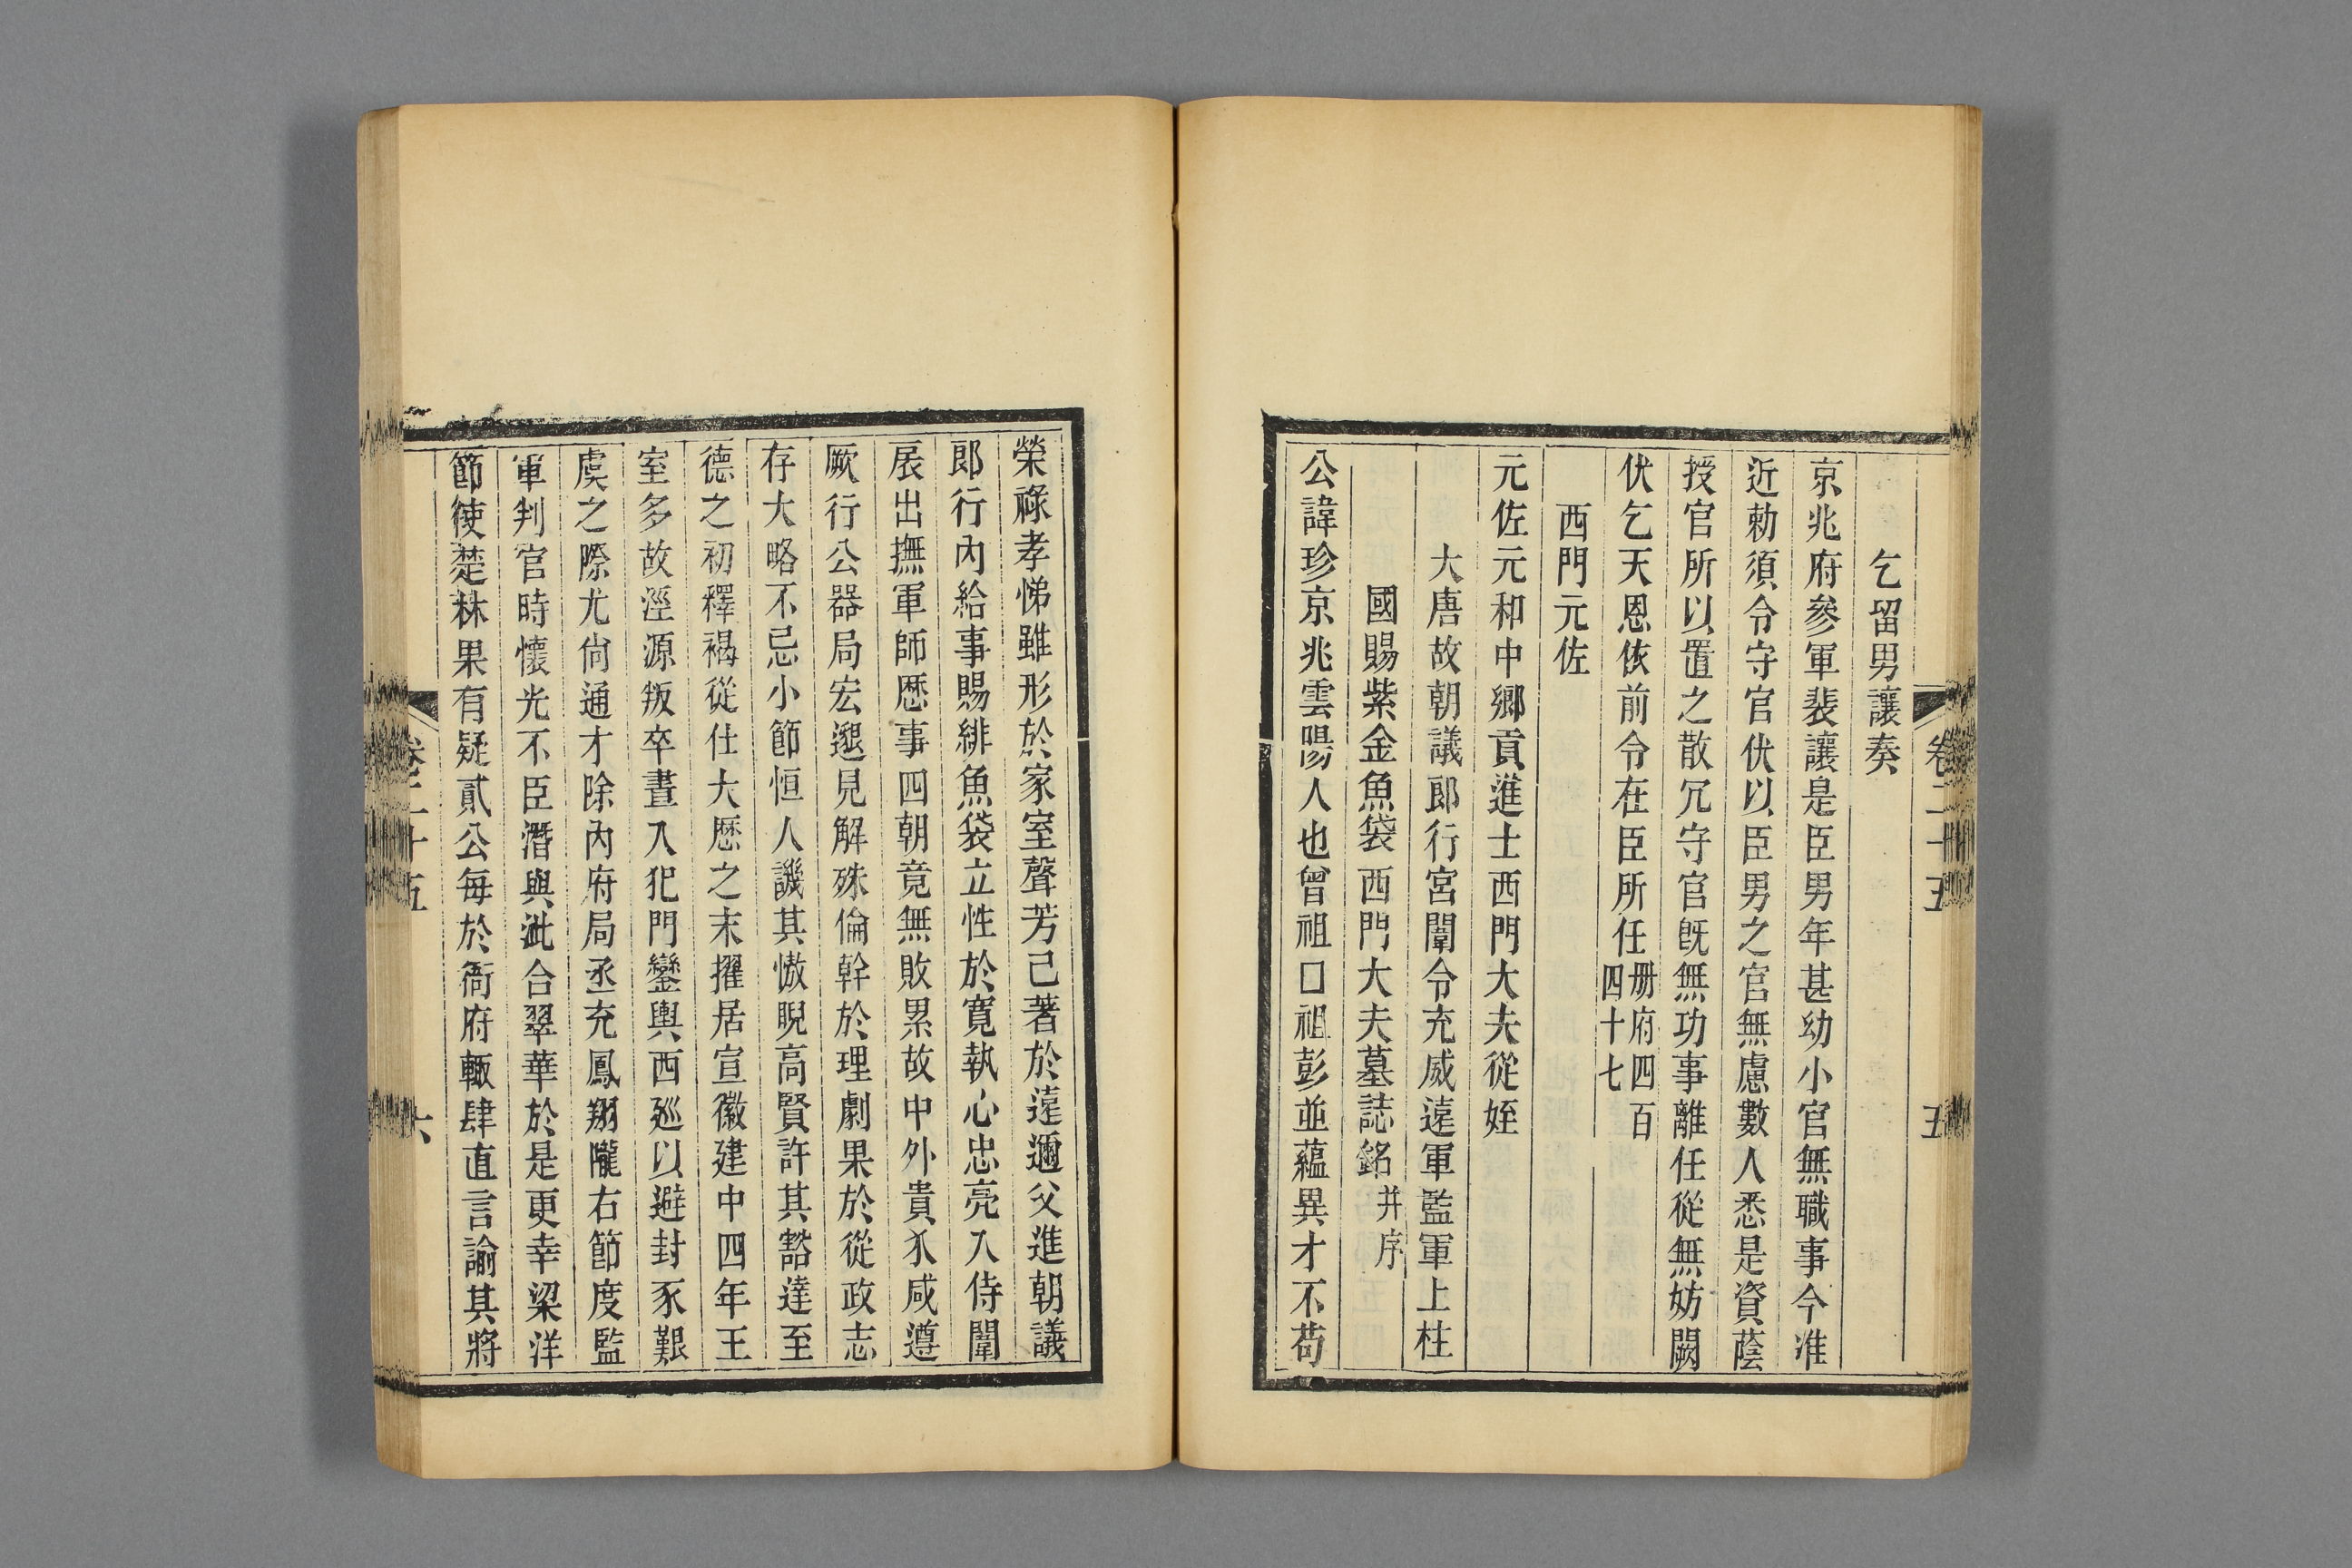 卷二十五
五
乞留男讓奏
京兆府參軍裴讓是臣男年甚幼小官無職事今准
近勅須令守官伏以臣男之官無慮數人悉是資蔭
授官所以置之散冗守官旣無功事離任從無妨闕
伏乞天恩依前令在臣所任册府四百
四十七
西門元佐
元佐元和中鄉貢進士西門大夫從姪
大唐故朝議郎行宮闈令充威遠軍監軍上柱
國賜紫金魚袋西門大夫墓誌銘并序
公諱珍京兆雲陽人也曾祖囗祖彭並蘊異才不苟
榮祿孝悌雖形於家室聲芳己著於遠邇父進朝議
郎行內給事賜緋魚袋立性於寬執心忠亮入侍闈
扆出撫軍師歷事四朝竟無敗累故中外貴仌咸遵
厥行公器局宏邈見解殊倫幹於理劇果於從政志
存大略不忌小節恒人譏其慠睨高賢許其豁達至
德之初釋褐從仕大歷之末擢居宣徽建中四年王
室多故涇源叛卒晝入犯門鑾輿西廵以避封豕艱
虞之際尤尙通才除內府局丞充鳳翔隴右節度監
軍判官時懷光不臣潛與泚合翠華於是更幸梁洋
節使楚林果有疑貳公每於衙府輙肆直言諭其將
卷二十五
六